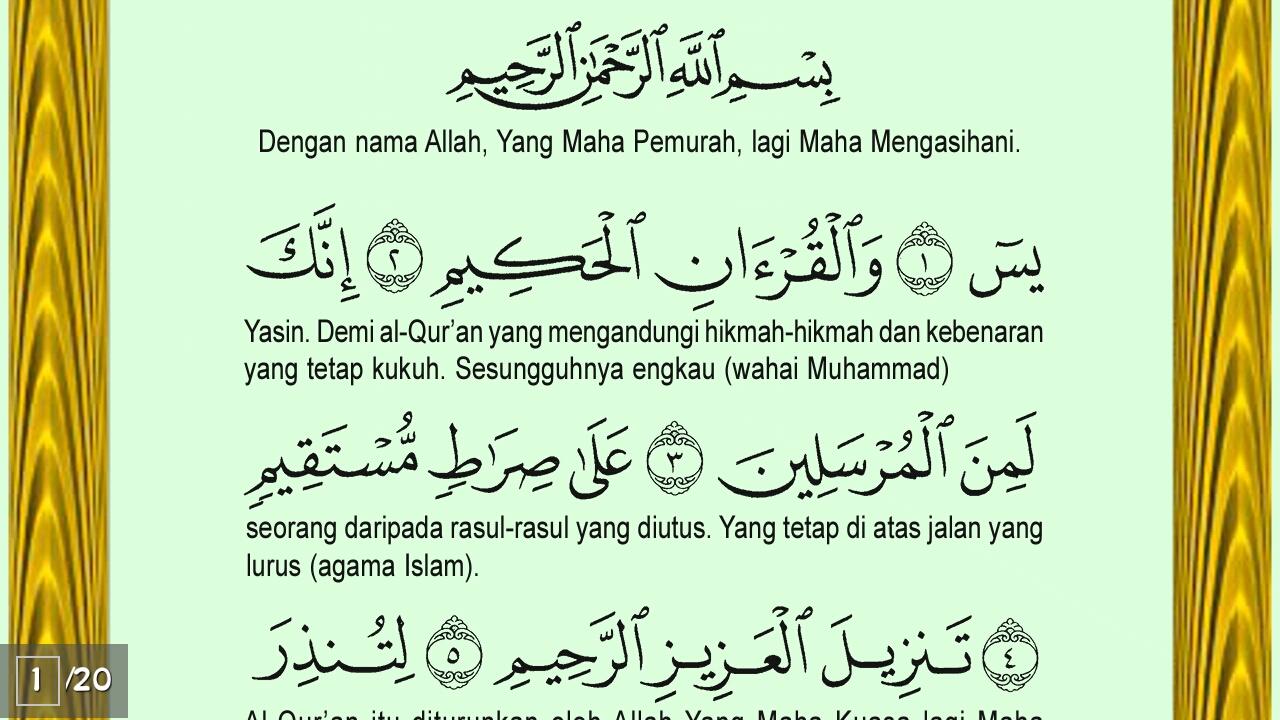 بِسْمِ ٱللَّهِ ٱلرَّحْمَٰنِ ٱلرَّحِيمِ
Dengan nama Allah, Yang Maha Pemurah, lagi Maha Mengasihani.
يسٓ ١ وَٱلْقُرْءَانِ ٱلْحَكِيمِ ٢ إِنَّكَ
Yasin. Demi al-Qur’an yang mengandungi hikmah-hikmah dan kebenaran
yang tetap kukuh. Sesungguhnya engkau (wahai Muhammad)
لَمِنَ ٱلْمُرْسَلِينَ ٣ عَلَىٰ صِرَٰطٍ مُّسْتَقِيمٍ
seorang daripada rasul-rasul yang diutus. Yang tetap di atas jalan yang
lurus (agama Islam).
٤ تَنزِيلَ ٱلْعَزِيزِ ٱلرَّحِيمِ ٥ لِتُنذِرَ
Al-Qur’an itu diturunkan oleh Allah Yang Maha Kuasa lagi Maha
1 /20